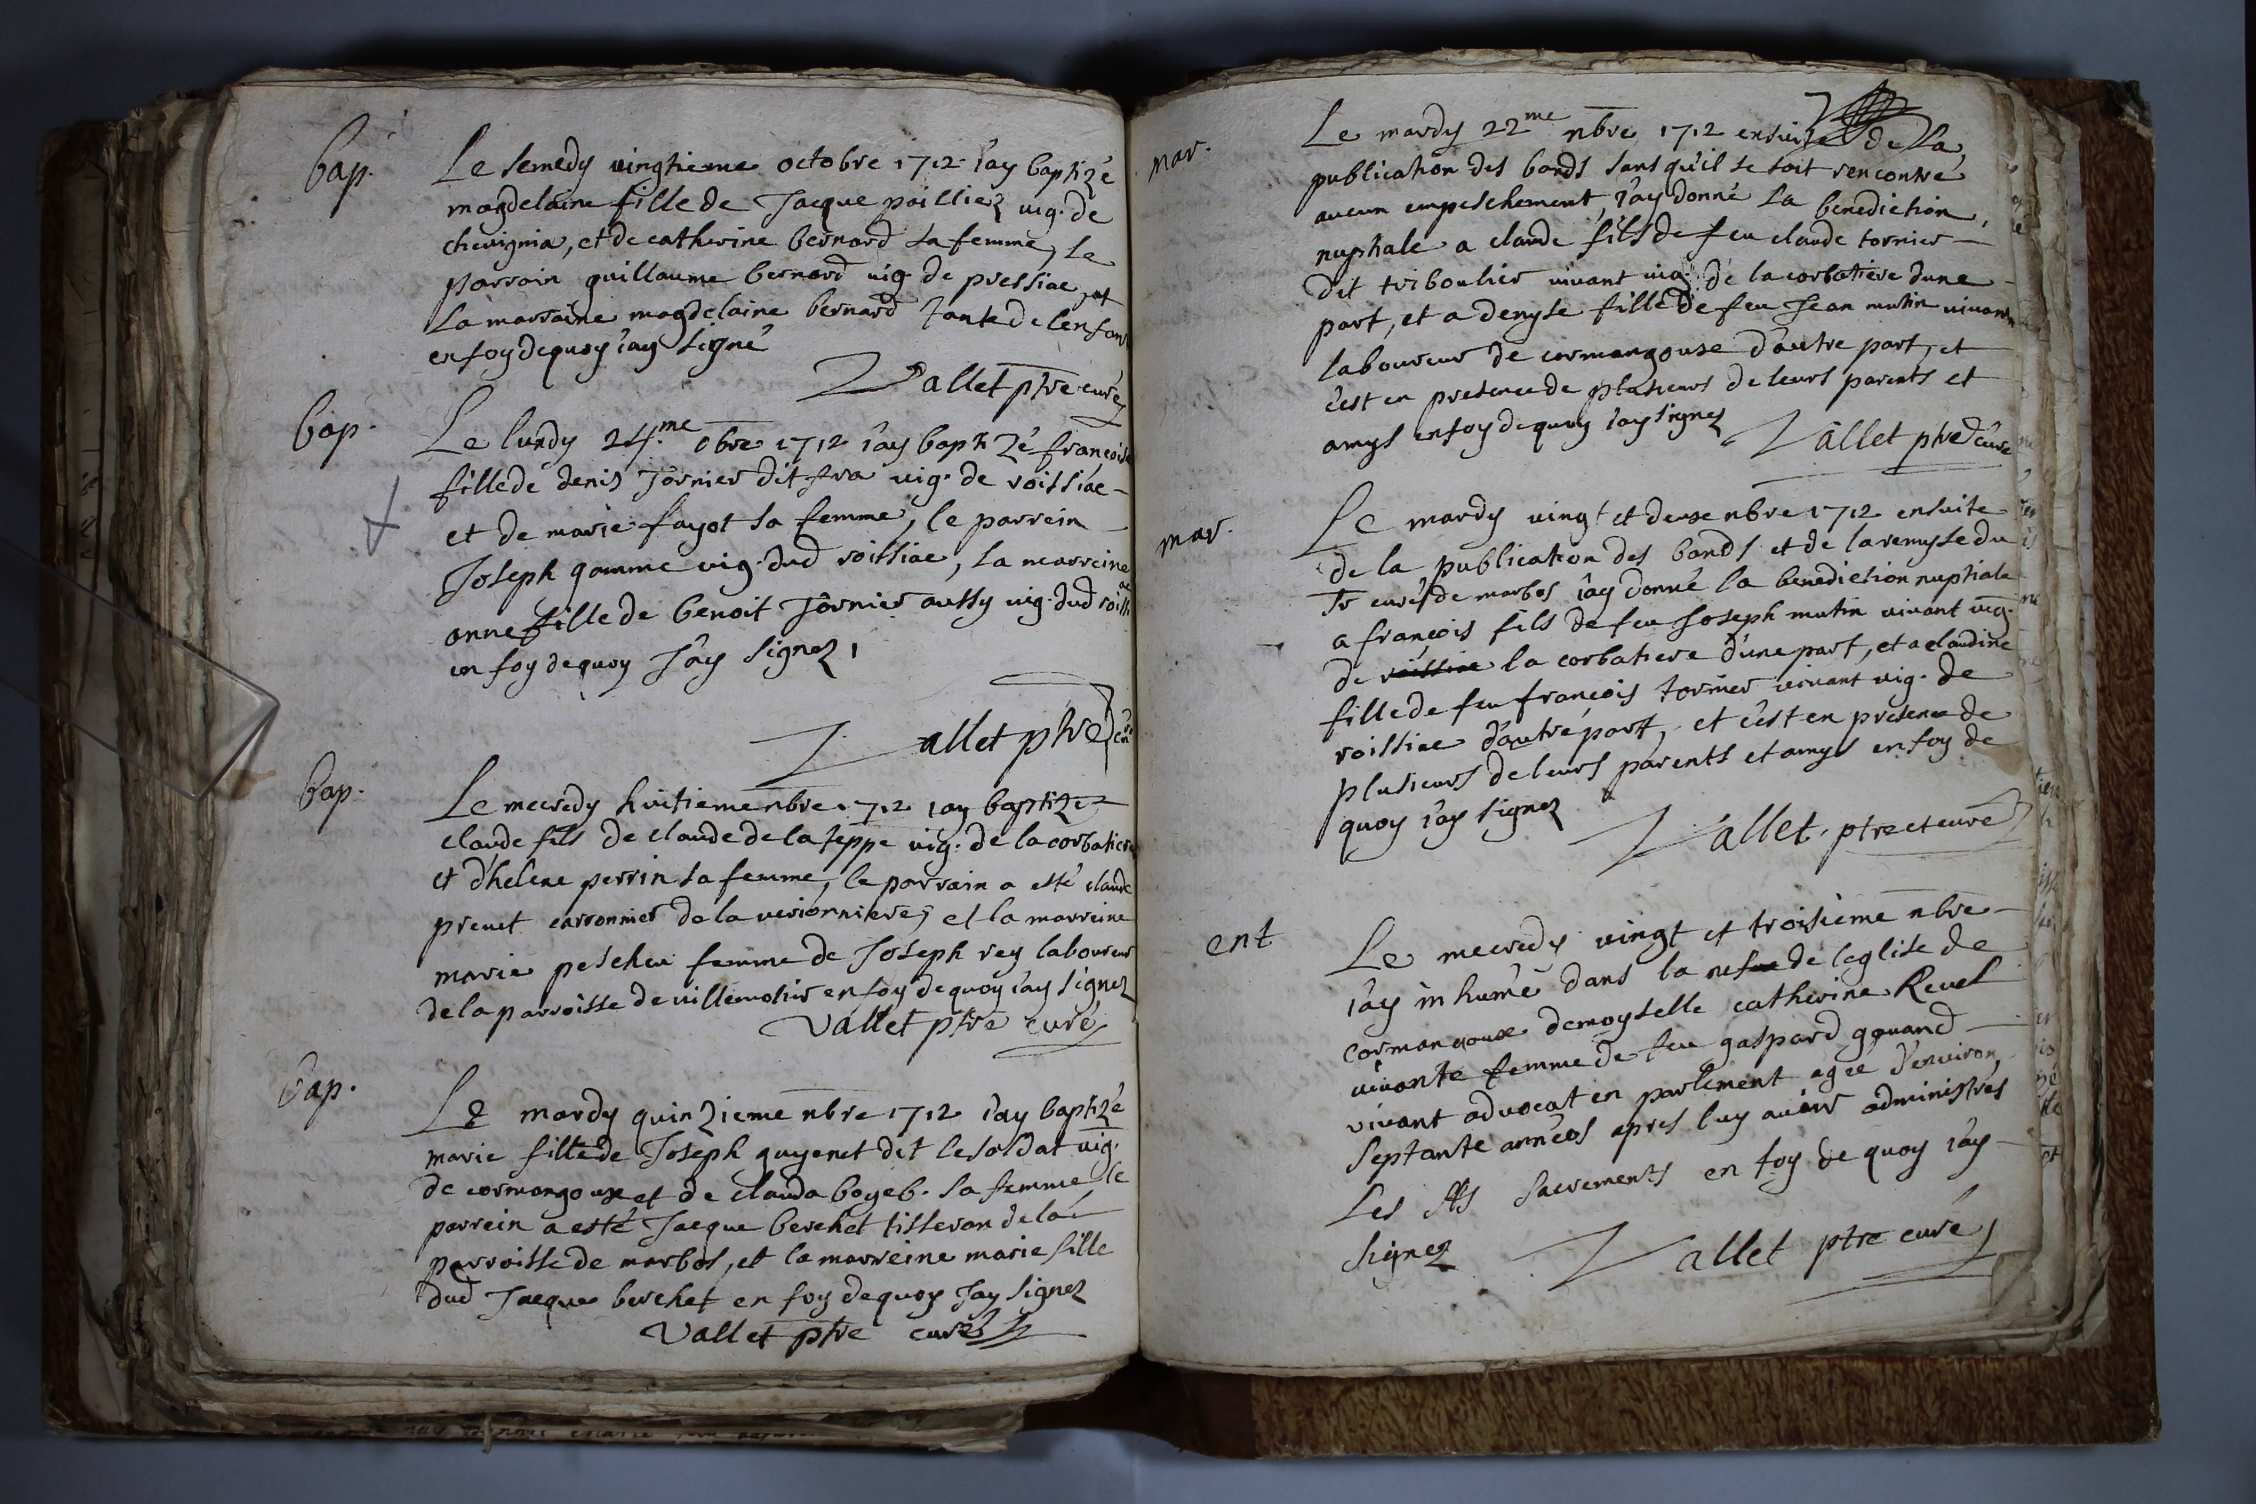 bap.
Le semedy vingtieme octobre 1712 i'ay baptizé
magdelaine fille de Jacque poilliez vig. de
chevignia, et de catherine bernard sa femme, le
parrain guillaume bernard vig. de pressiac, et
la marraine magdelaine bernard tante de lenfant
en foy dequoy i'ay signé
Vallet ptre curé
bap.
Le lundy 24.me obre 1712 i'ay baptizé françoise
fille de denis Tornier dit fra vig. de roissiac
et de marie fayot sa femme, le parrein
Joseph gomme vig. dud roissiac, la marreine
anne fille de benoit Tornier aussy vig. dud roissiac
en foy dequoy J'ay signez
Vallet ptre curé
bap.
Le mecredy huitieme nbre 1712 i'ay baptizé
claude fils de claude de la teppe vig. de la corbatiere
et d'helene perrin sa femme, le parrain a esté claude
prevet carronnier de la verionniere, et la marreine
marie pescheu femme de Joseph rey laboureur
de la parroisse de villemotier en foy dequoy i'ay signez
Vallet ptre curé
bap.
Le mardy quinzieme nbre 1712 i'ay baptizé
marie fille de Joseph guyenet dit le soldat vig.
de cormangoux et de clauda boyeb. sa femme, le
parrein a esté Jacque berchet tisseran de la
parroisse de marbos, et la marreine marie fille
dud Jacque berchet en foy dequoy J'ay signez
Vallet ptre curé
mar.
Le mardy 22me nbre 1712 ensuite de la
publication des bands sans qu'il se soit rencontré
aucun empeschement i'ay donné la benediction
nuptiale a claude fils de feu claude tornier
dit triboulier vivant vig. de la corbatiere dune
part, et a denyse fille de feu Jean mutin vivant
laboureur de cormangouse d'autre part, et
c'est en presence de plusieurs de leurs parents et
amys en foy dequoy i'ay signez
Vallet ptre curé
mar.
Le mardy vingt et deuxe nbre 1712 ensuite
de la publication des bands et de la remysse du
Sr curé de marbos i'ay donné la benediction nuptiale
a françois fils de feu Joseph mutin vivant vig.
de roissiac la corbatiere d'une part, et a claudine
fille de feu françois tornier vivant vig. de
roissiac d'autre part, et c'est en presence de
plusieurs de leurs parents et amys en foy de
quoy i'ay signez
Vallet ptre et curé
ent
Le mecredy vingt et troisieme nbre
i'ay inhumé dans la de leglise de
cormangoux demoyselle catherine Revel
vivante femme de feu gaspard gouand
vivant advocat en parlement agée d'environ
septante années apres luy avoir administrés
Les Sts sacrements en foy de quoy i'ay
signez
Vallet ptre curé